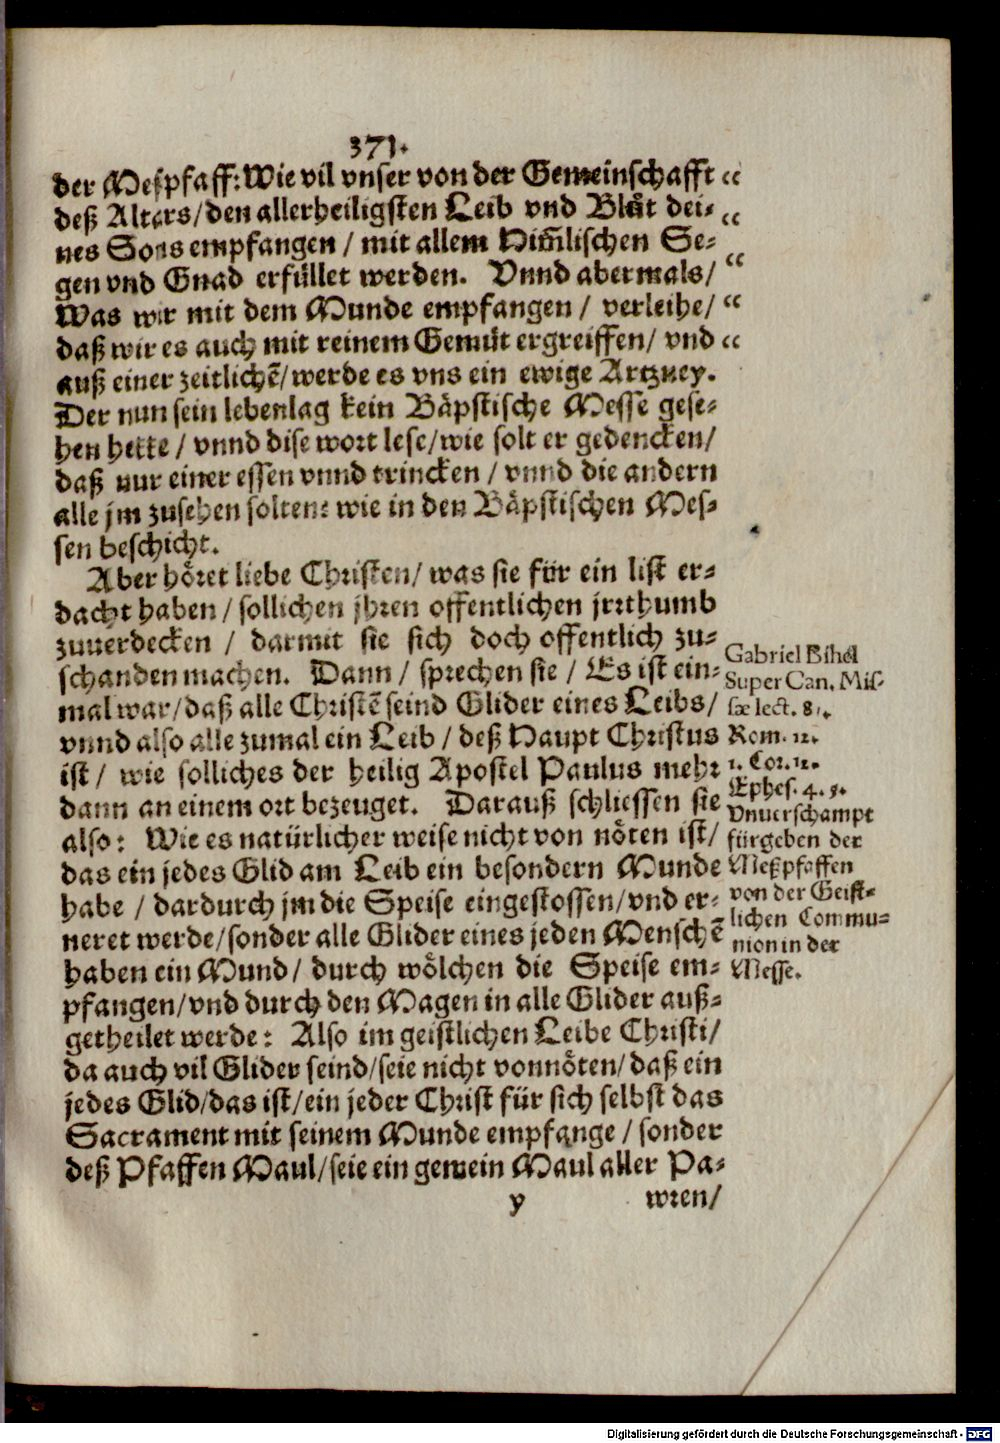 371.
der Meßpfaff: Wie vil vnser von der Gemeinschafft “
deß Altars/ den allerheiligsten Leib vnd Blůt dei- “
nes Sons empfangen / mit allem Him̃lischen Se-
gen vnd Gnad erfüllet werden. Vnnd abermals/ “
Was wir mit dem Munde empfangen / verleihe/ “
daß wir es auch mit reinem Gemüt ergreiffen/ vnd “
auß einer zeitlichẽ/ werde es vns ein ewige Artzney.
Der nun sein lebenlag kein Bäpstische Messe gese-
hen hette / vnnd dise wort lese/ wie solt er gedencken/
daß nur einer essen vnnd trincken / vnnd die andern
alle jm zusehen solten: wie in den Bäpstischen Mes-
sen beschicht.
Aber höret liebe Christen/ was sie für ein list er-
dacht haben / sollichen jhren offentlichen jrrthumb
zuuerdecken / darmit sie sich doch offentlich zu-
schanden machen. Dann / sprechen sie / Es ist ein-
mal war/ daß alle Christẽ seind Glider eines Leibs/
vnnd also alle zumal ein Leib / deß Haupt Christus
ist / wie solliches der heilig Apostel Paulus mehr
dann an einem ort bezeuget. Darauß schliessen sie
also: Wie es natürlicher weise nicht von nöten ist/
das ein jedes Glid am Leib ein besondern Munde
habe / dardurch jm die Speise eingestossen/ vnd er-
neret werde/ sonder alle Glider eines jeden Menschẽ
haben ein Mund/ durch wölchen die Speise em-
pfangen/ vnd durch den Magen in alle Glider auß-
getheilet werde: Also im geistlichen Leibe Christi/
da auch vil Glider seind/ seie nicht vonnöten/ daß ein
jedes Glid/ das ist/ ein jeder Christ für sich selbst das
Sacrament mit seinem Munde empfange / sonder
deß Pfaffen Maul/ seie ein gemein Maul aller Pa-
y wren/
Gabriel Bihel
Super Can. Mis-
sæ lect. 81.
Rom. 12.
1. Cor. 12.
Ephes. 4. 5.
Vnuerschampt
fürgeben der
Meßpfaffen
von der Geist-
lichen Commu-
nion in der
Messe.
Digitalisierung gefördert durch die Deutsche Forschungsgemeinschaft - DFG